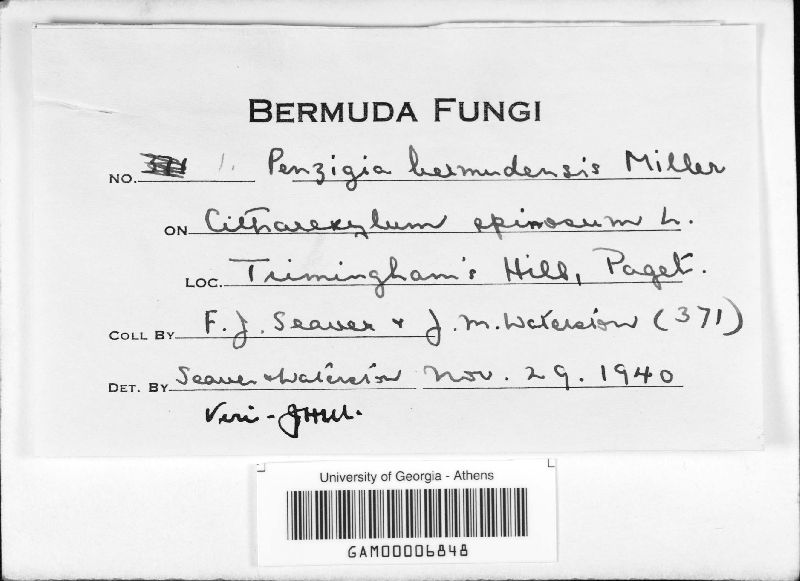 BERMUDA FUNGI
NO. 371 1. Penzigia bermudensis Miller
ON Citharexylum spinosum L.
LOC. Trimingham's Hill, Paget.
COLL BY F. J. Seaver & J. M. Waterston (371)
DET. BY Seaver & Waterston Nov. 29. 1940
Veri - JHM.
University of Georgia - Athens
GAM00006848